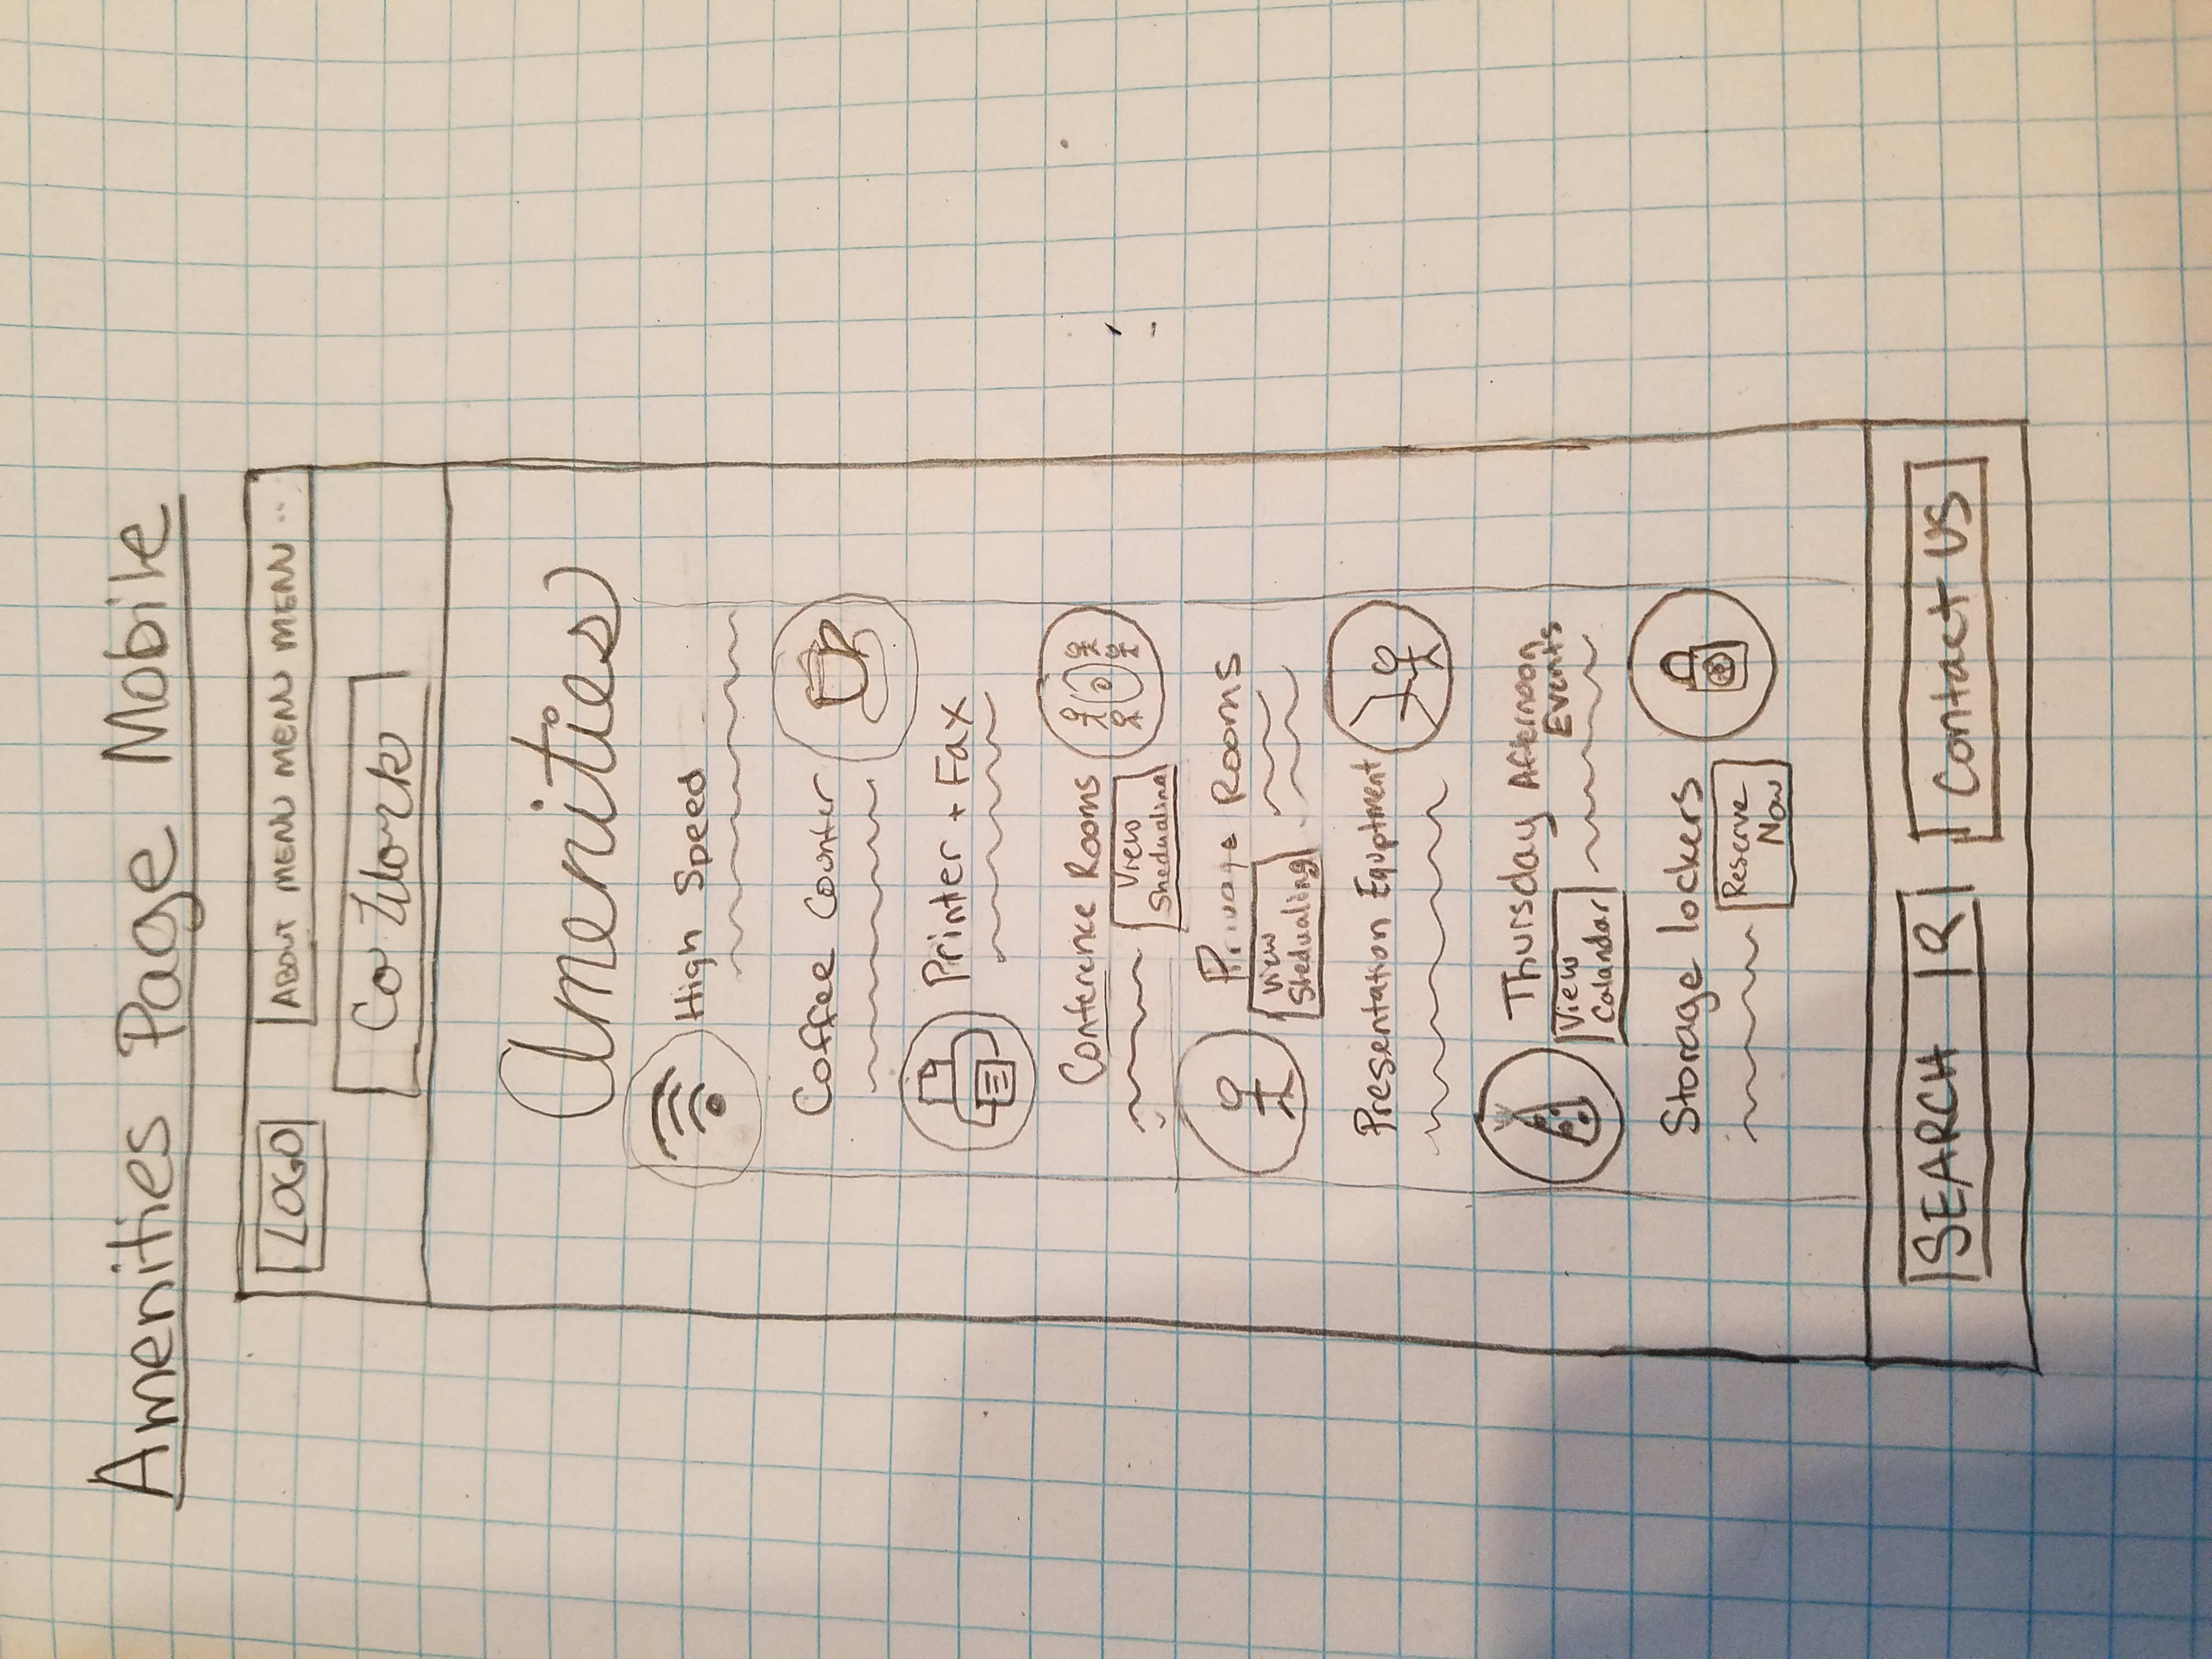 Amenities Page Mobile
LOGO
ABOUT MENU MENU MENU ..
Co Work
Amenities
High Speed
Coffee Counter
Printer + Fax
Conference Rooms
View
Shedualing
Private Rooms
View
Shedualing
Presentation Equptment
Thursday Afternoon
Events
View
Calandar
Storage lockers
Reserve
Now
SEARCH
Contact US